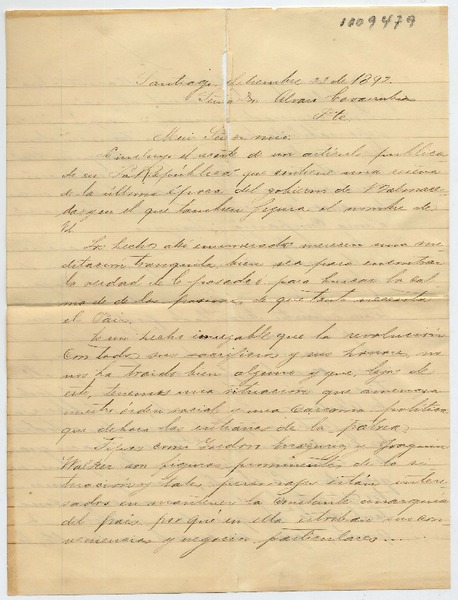 1109479
Santiago, diciembre 22 de 1892.
Señor Dn Alvaro Covarrubias
Pte
Mui Señor mio:
Con el recorte de un artículo publica
do en "La República" que contiene una
de la última época del gobierno de Balmace
da en el que tambien figura el nombre de
Ud
Los hechos ahí enumerados merecen una me
ditacion tranquila, bien sea para encontrar
la verdad de lo pasado, para buscar la cal
ma de las pasiones de que tanto necesita
el Pais.
Es un hecho innegable que la revolucion
con todos sus sacrificios y sus horrores, no
nos ha traido bien alguno y que, lejos de
esto, tenemos una situacion que amenaza
nuestro órden social y una carcoma politica
que devora las entrañas de la patria.
Tipos como Isidoro Errázuriz y Joaquin
Walker son figuras prominentes de la si
tuacion y tales personajes están intere
sados en mantener la constante anarquia
del pais, porque en ella estriban sus con
veniencias y negocios particulares.....